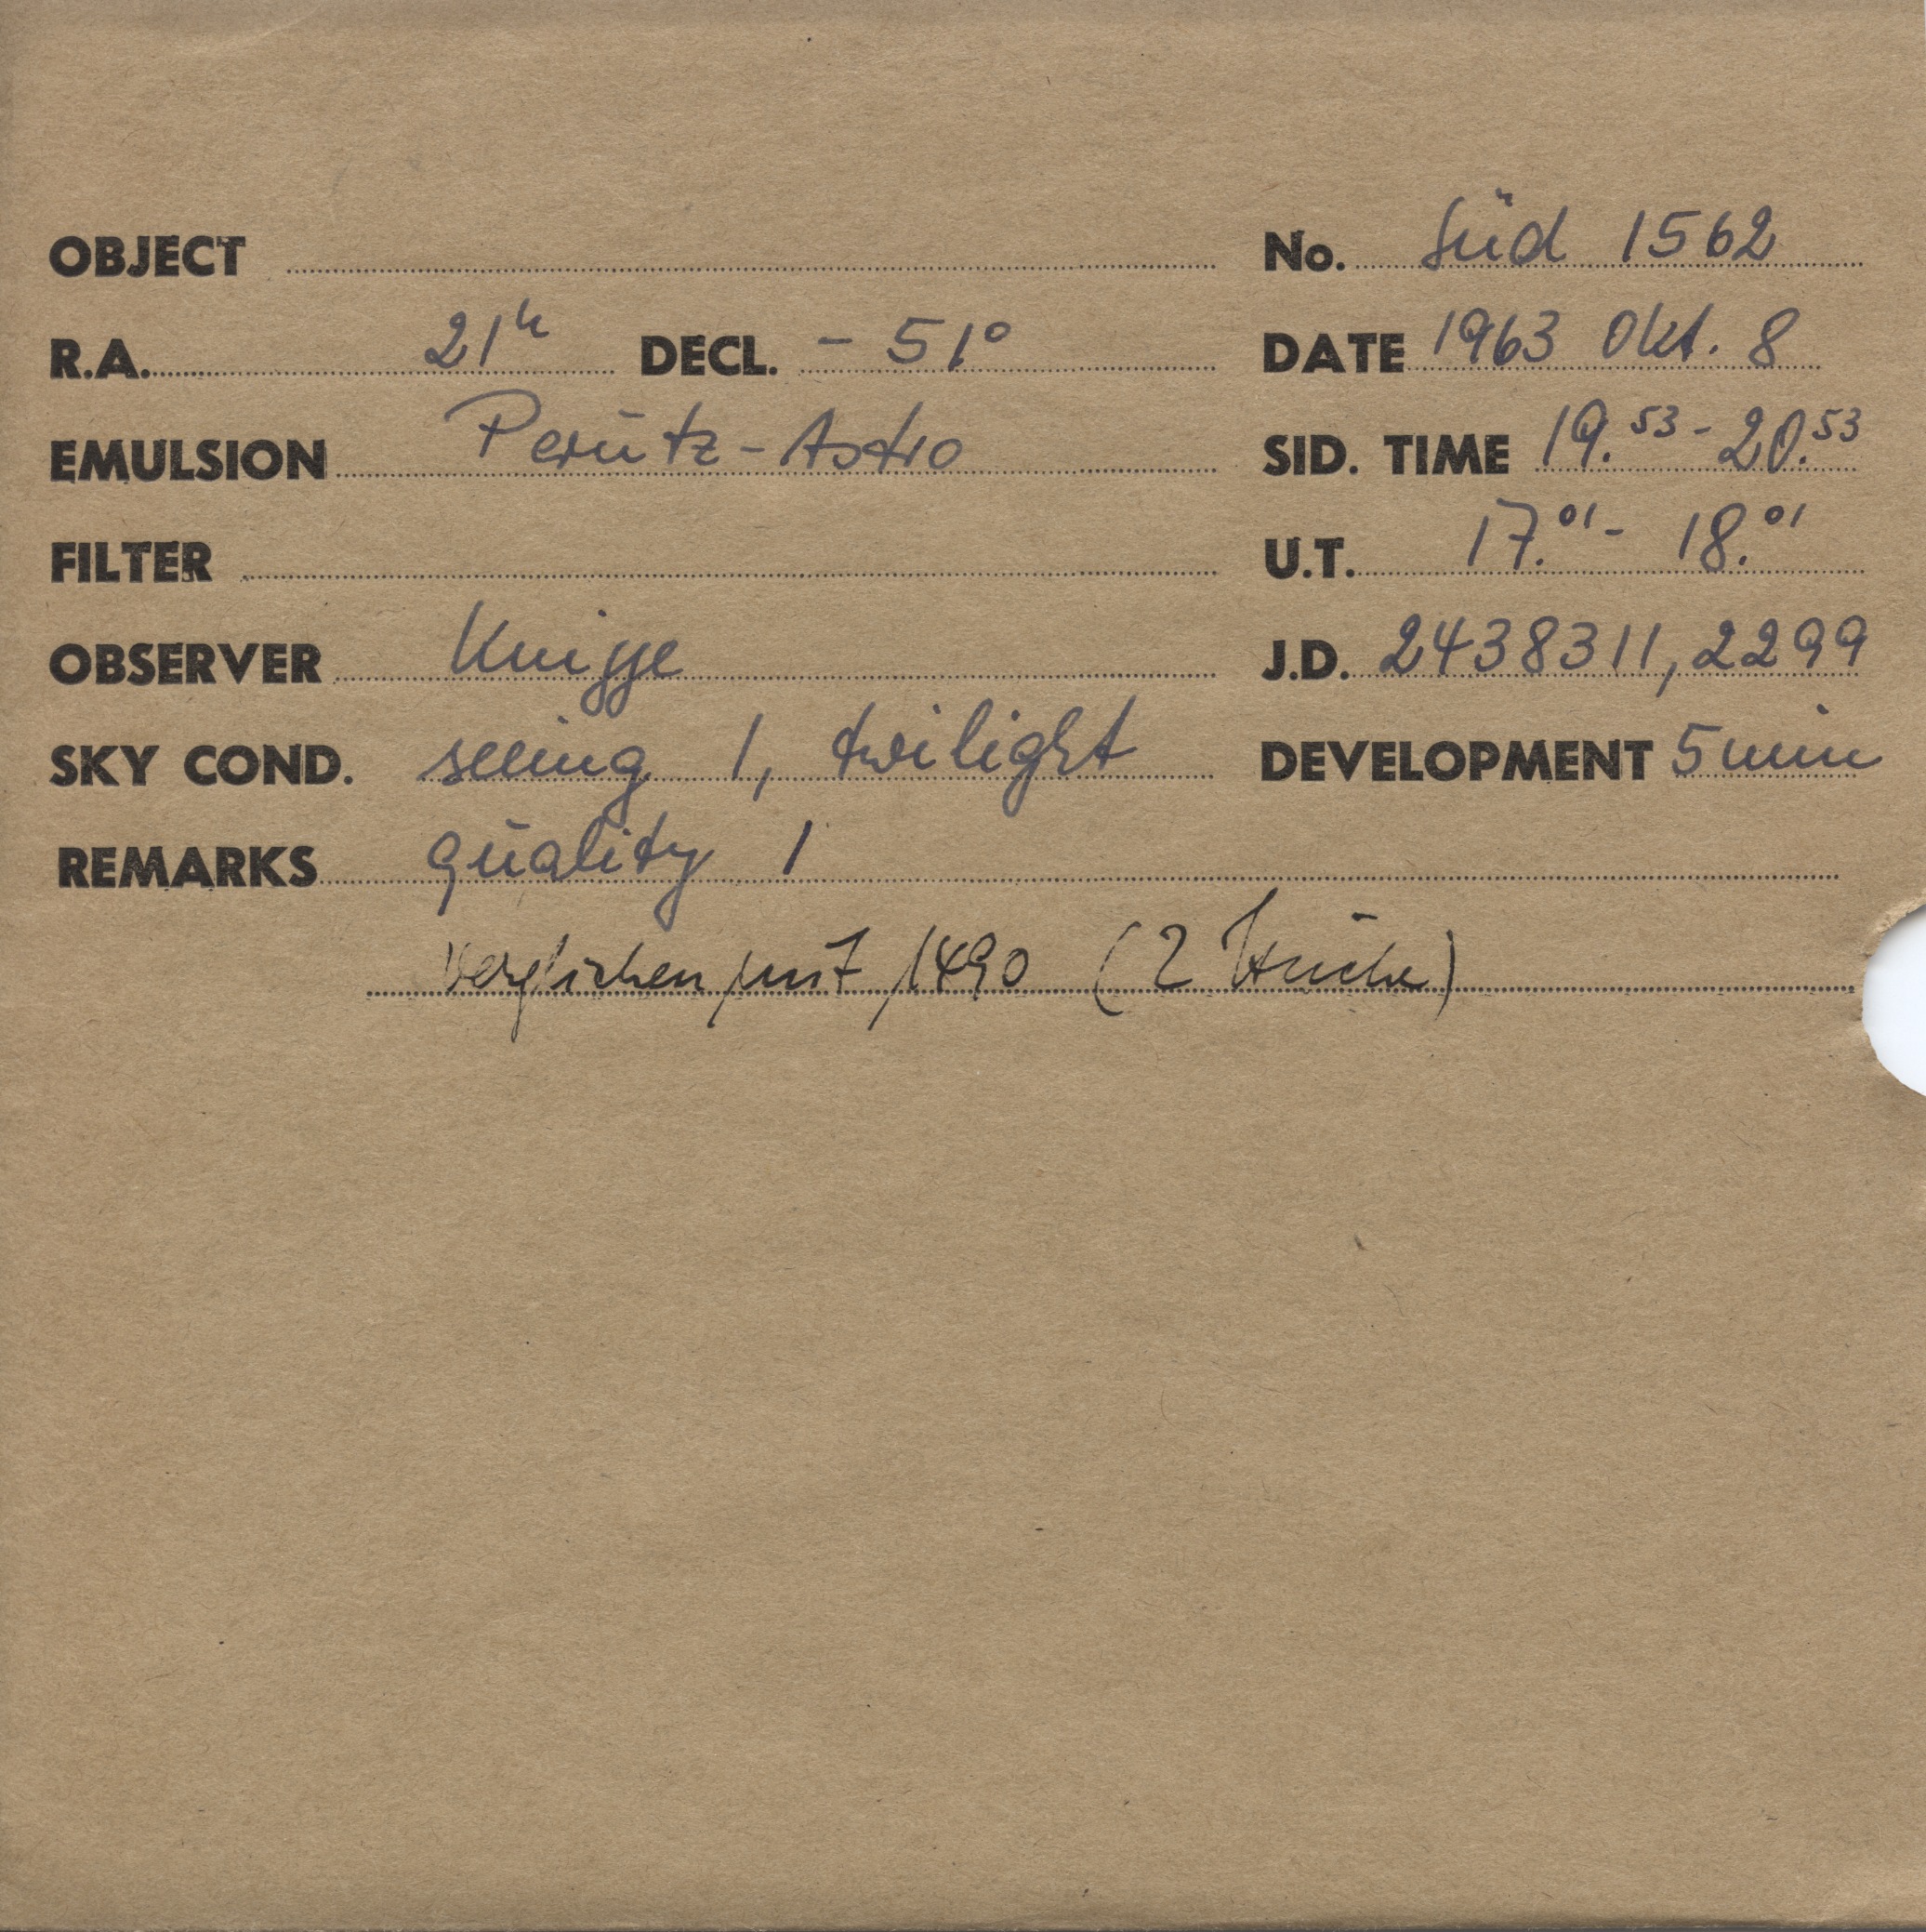 OBJECT No. Süd 1562
R.A. 21h DECL. - 51° DATE 1963 Okt. 8
EMULSION Perutz-Astro SID. TIME 19.53 - 20.53
FILTER U.T. 17.01 - 18.01
OBSERVER Knigge J.D. 2438311,2299
SKY COND. seeing 1, twilight DEVELOPMENT 5 min
REMARKS quality 1
verglichen mit 1490 (2